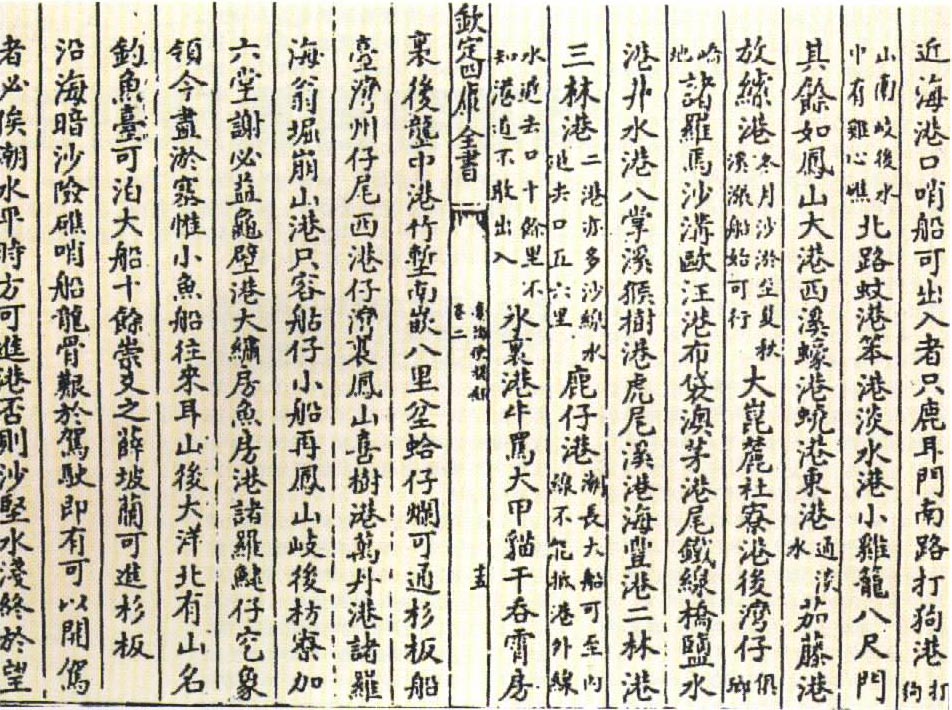 近海港口哨船可出入者只鹿耳門南路打狗港打狗
山南岐後水中有雞心礁北路蚊港笨港淡水港小雞籠八尺門
其餘如鳳山大港西溪蠔港蟯港東港通淡水茄藤港
放䌇港冬月沙淤至夏秋溪漲船始可行大崑麓社寮港後灣仔俱鄉
嶠地諸羅馬沙溝歐汪港布袋澳茅港尾鐵線橋鹽水
港井水港八掌溪猴樹港虎尾溪港海豐港二林港
三林港二港亦多沙線水退去口五六里鹿仔港潮長大船可至內線不能抵港外線
水退去口十餘里不知港道不敢出入水裏港牛罵大甲貓干吞霄房
欽定四庫全書
臺海使槎錄
卷二
十五
裏後龍中港竹塹南嵌八里坌蛤仔爛可通杉板船
臺灣州仔尾西港仔灣裏鳳山喜樹港萬丹港諸羅
海翁堀崩山港只容䑩仔小船再鳳山岐後枋寮加
六堂謝必益龜壁港大繡房魚房港諸羅鯚仔穵象
領今盡淤塞惟小魚船往來耳山後大洋北有山名
釣魚臺可泊大船十餘崇爻之薛坡蘭可進杉板
沿海暗沙險礁哨船龍骨艱於駕駛即有可以開駕
者必俟潮水平時方可進港否則沙堅水淺終於望